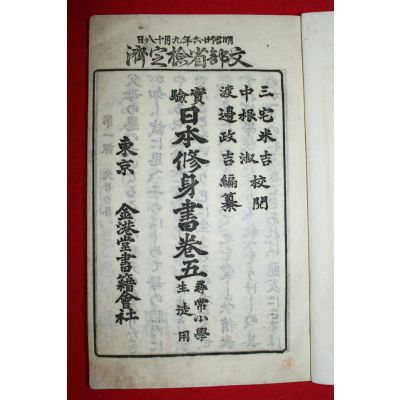 明治廿六年九月十八日
文部省檢定濟
三宅米吉
中根淑
校閲
渡邊政吉編纂
實驗
日本修身書卷五
尋常小學
生徒用
東京
金港堂書籍會社